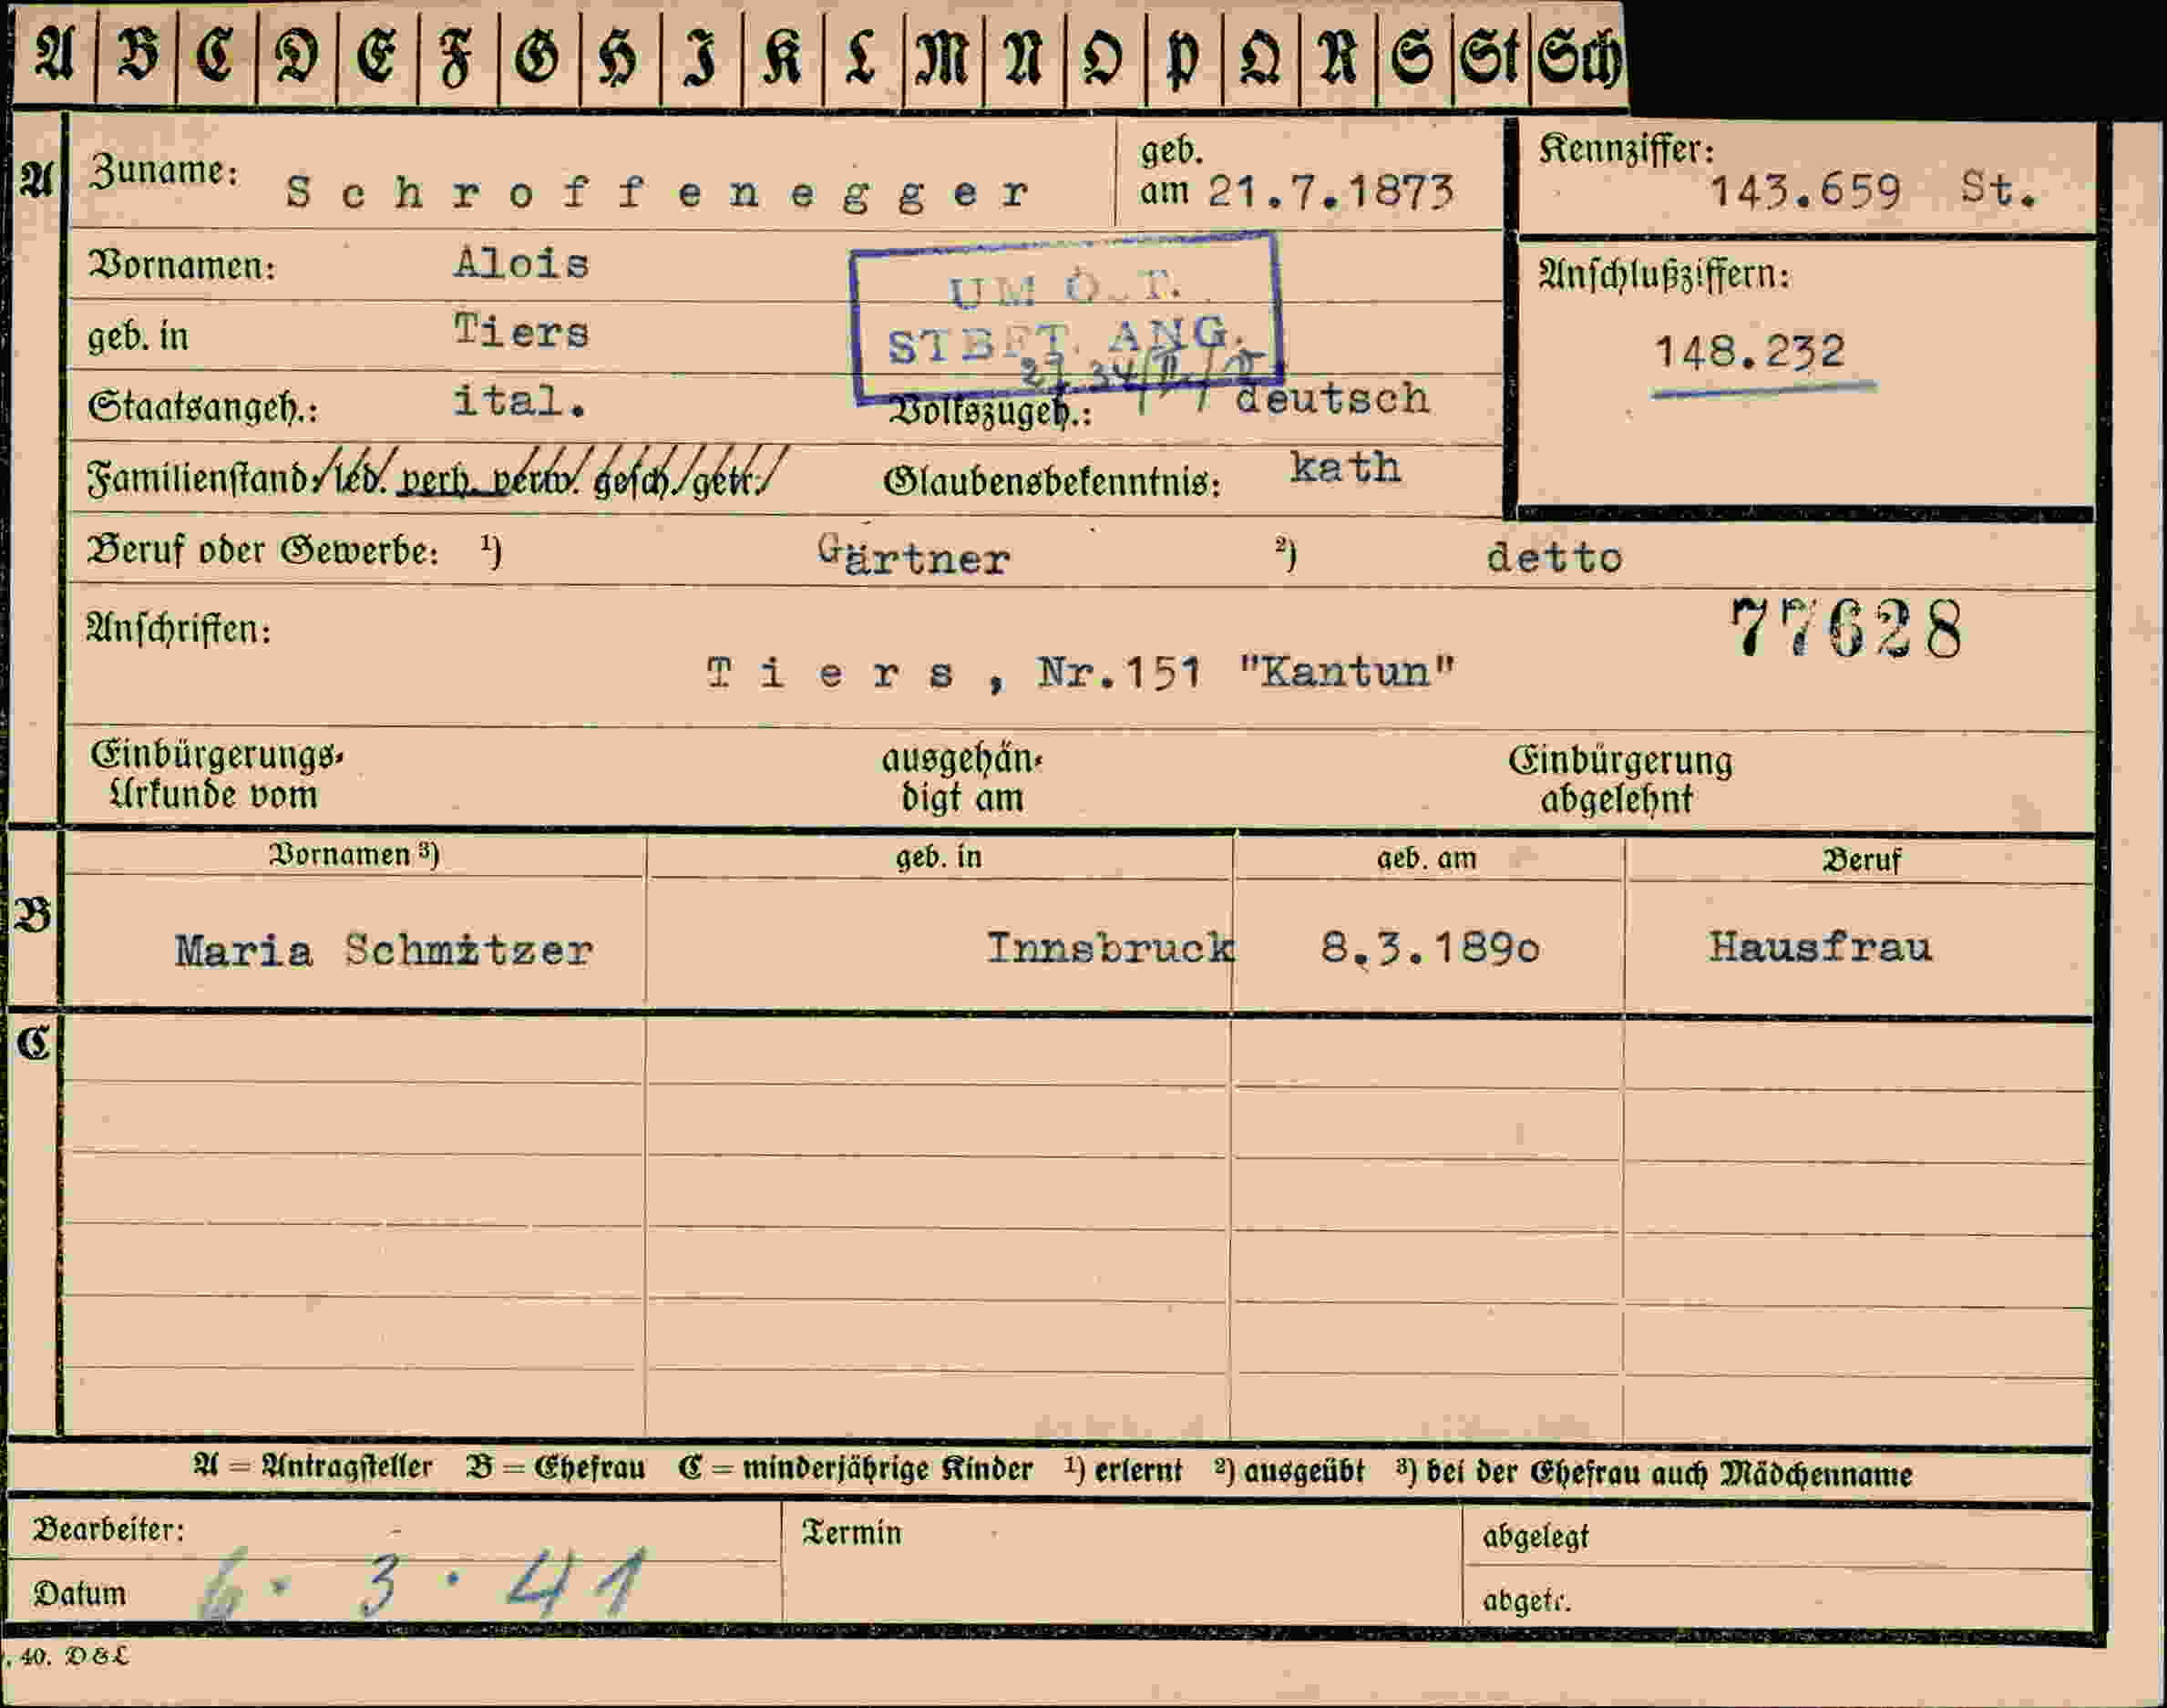 A B C D E F G H I K L M N O P Q R S St Sch
A
Zuname: Schroffenegger
geb. am 21.7.1873
Kennziffer: 143.659 St.
Vornamen: Alois
UM O.T.
STBFT. ANG.
Anschlußziffern:
148.232
geb. in Tiers
Staatsangeh.: ital. Volkszugeh.: deutsch
Familienstand: led. verh. verw. gesch. getr. Glaubensbekenntnis: kath
Beruf oder Gewerbe: ¹) Gärtner ²) detto
77628
Anschriften:
Tiers, Nr.151 "Kantun"
Einbürgerungs-
Urkunde vom
ausgehän-
digt am
Einbürgerung
abgelehnt
B
Vornamen ³) geb. in geb. am Beruf
Maria Schmitzer Innsbruck 8.3.1890 Hausfrau
C
A = Antragsteller B = Ehefrau C = minderjährige Kinder ¹) erlernt ²) ausgeübt ³) bei der Ehefrau auch Mädchenname
Bearbeiter: Termin abgelegt
Datum 6. 3. 41 abgetr.
. 40. D & L